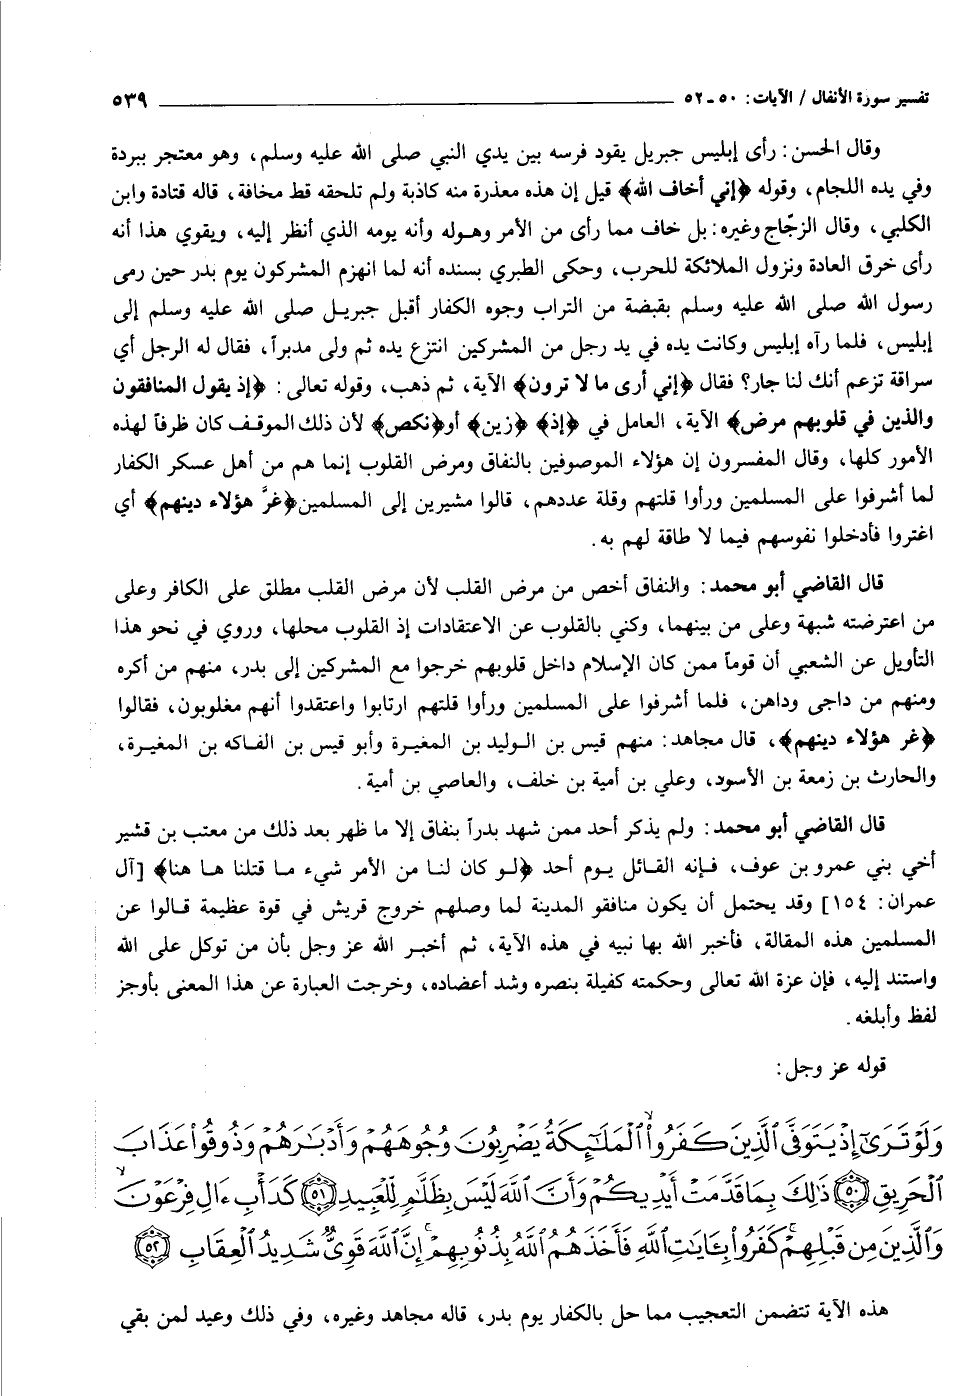 تفسير سورة الأنفال / الآيات: ٥٠ - ٥٢ ــــــــــ ٥٣٩
وقال الحسن: رأى إبليس جبريل يقود فرسه بين يدي النبي صلى الله عليه وسلم، وهو معتجر ببردة
وفي يده اللجام، وقوله ﴿إني أخاف الله﴾ قيل إن هذه معذرة منه كاذبة ولم تلحقه قط مخافة، قاله قتادة وابن
الكلبي، وقال الزجّاج وغيره: بل خاف مما رأى من الأمر وهوله وأنه يومه الذي أنظر إليه، ويقوي هذا أنه
رأى خرق العادة ونزول الملائكة للحرب، وحكى الطبري بسنده أنه لما انهزم المشركون يوم بدر حين رمى
رسول الله صلى الله عليه وسلم بقبضة من التراب وجوه الكفار أقبل جبريل صلى الله عليه وسلم إلى
إبليس، فلما رآه إبليس وكانت يده في يد رجل من المشركين انتزع يده ثم ولى مدبراً، فقال له الرجل أي
سراقة تزعم أنك لنا جار؟ فقال ﴿إني أرى ما لا ترون﴾ الآية، ثم ذهب، وقوله تعالى: ﴿إذ يقول المنافقون
والذين في قلوبهم مرض﴾ الآية، العامل في ﴿إذ﴾ ﴿زين﴾ أو﴿نكص﴾ لأن ذلك الموقف كان ظرفاً لهذه
الأمور كلها، وقال المفسرون إن هؤلاء الموصوفين بالنفاق ومرض القلوب إنما هم من أهل عسكر الكفار
لما أشرفوا على المسلمين ورأوا قلتهم وقلة عددهم، قالوا مشيرين إلى المسلمين﴿غرَّ هؤلاء دينهم﴾ أي
اغتروا فأدخلوا نفوسهم فيما لا طاقة لهم به.
قال القاضي أبو محمد: والنفاق أخص من مرض القلب لأن مرض القلب مطلق على الكافر وعلى
من اعترضته شبهة وعلى من بينهما، وكني بالقلوب عن الاعتقادات إذ القلوب محلها، وروي في نحو هذا
التأويل عن الشعبي أن قوماً ممن كان الإسلام داخل قلوبهم خرجوا مع المشركين إلى بدر، منهم من أكره
ومنهم من داجى وداهن، فلما أشرفوا على المسلمين ورأوا قلتهم ارتابوا واعتقدوا أنهم مغلوبون، فقالوا
﴿غر هؤلاء دينهم﴾، قال مجاهد: منهم قيس بن الوليد بن المغيرة وأبو قيس بن الفاكه بن المغيرة،
والحارث بن زمعة بن الأسود، وعلي بن أمية بن خلف، والعاصي بن أمية.
قال القاضي أبو محمد: ولم يذكر أحد ممن شهد بدراً بنفاق إلا ما ظهر بعد ذلك من معتب بن قشير
أخي بني عمرو بن عوف، فإنه القائل يوم أحد ﴿لو كان لنا من الأمر شيء ما قتلنا ها هنا﴾ [آل
عمران: ١٥٤] وقد يحتمل أن يكون منافقو المدينة لما وصلهم خروج قريش في قوة عظيمة قالوا عن
المسلمين هذه المقالة، فأخبر الله بها نبيه في هذه الآية، ثم أخبر الله عز وجل بأن من توكل على الله
واستند إليه، فإن عزة الله تعالى وحكمته كفيلة بنصره وشد أعضاده، وخرجت العبارة عن هذا المعنى بأوجز
لفظ وأبلغه.
قوله عز وجل:
وَلَوْ تَرَىٰٓ إِذْ يَتَوَفَّى ٱلَّذِينَ كَفَرُواْ ۙ ٱلْمَلَٰٓئِكَةُ يَضْرِبُونَ وُجُوهَهُمْ وَأَدْبَٰرَهُمْ وَذُوقُواْ عَذَابَ
ٱلْحَرِيقِ ﴿٥٠﴾ ذَٰلِكَ بِمَا قَدَّمَتْ أَيْدِيكُمْ وَأَنَّ ٱللَّهَ لَيْسَ بِظَلَّٰمٍ لِّلْعَبِيدِ ﴿٥١﴾ كَدَأْبِ ءَالِ فِرْعَوْنَ ۙ
وَٱلَّذِينَ مِن قَبْلِهِمْ ۚ كَفَرُواْ بِـَٔايَٰتِ ٱللَّهِ فَأَخَذَهُمُ ٱللَّهُ بِذُنُوبِهِمْ ۚ إِنَّ ٱللَّهَ قَوِىٌّ شَدِيدُ ٱلْعِقَابِ ﴿٥٢﴾
هذه الآية تتضمن التعجيب مما حل بالكفار يوم بدر، قاله مجاهد وغيره، وفي ذلك وعيد لمن بقي